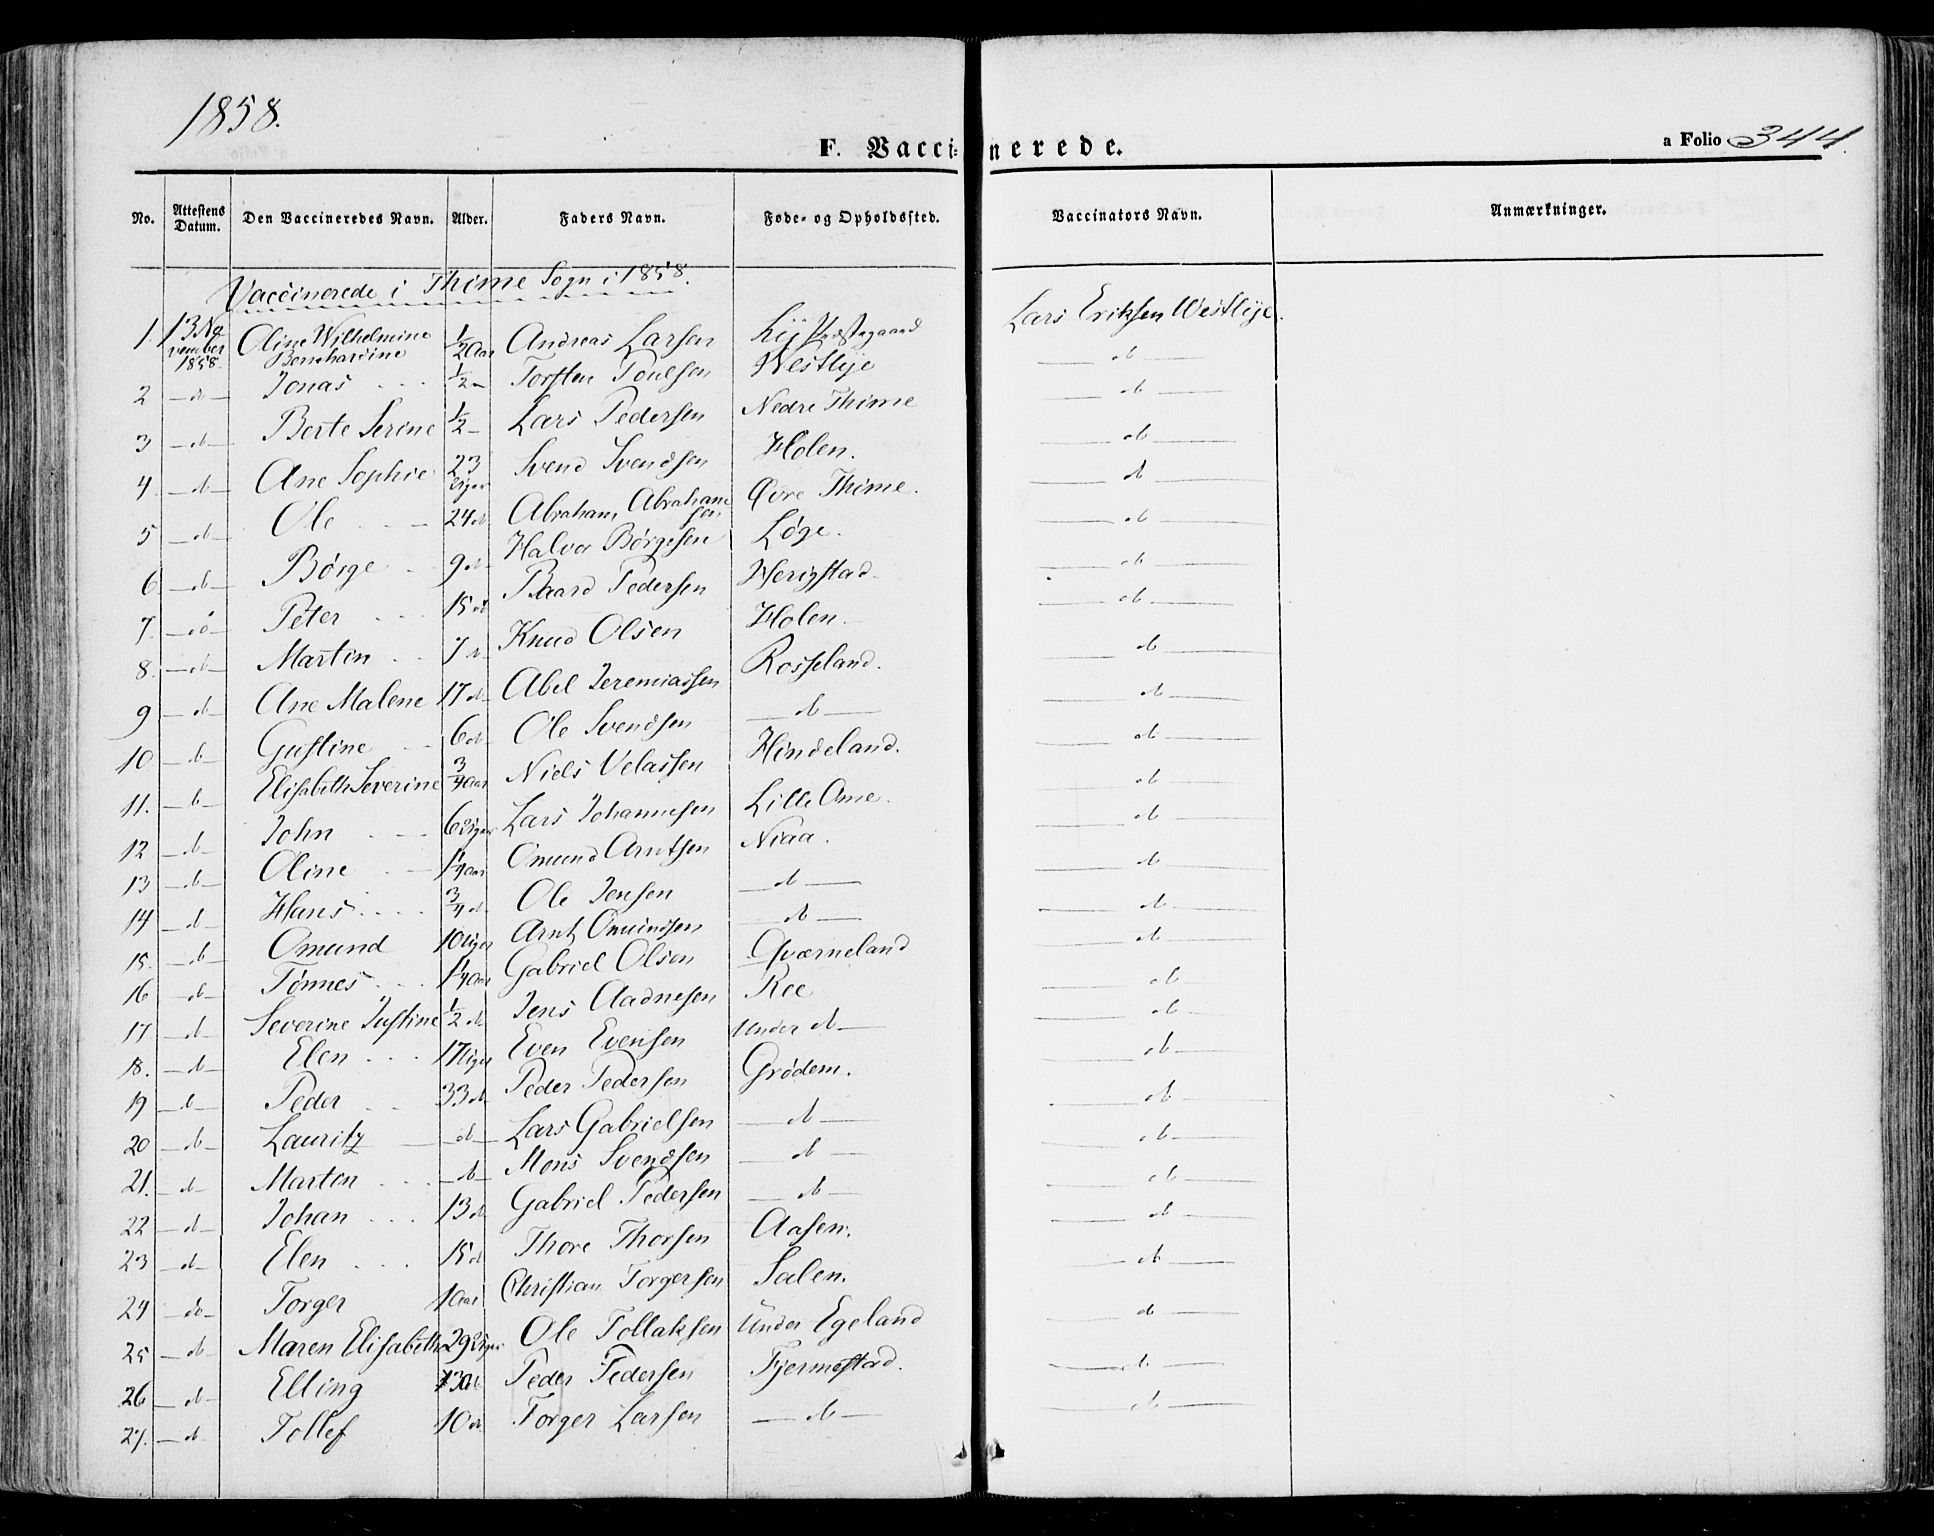 1858.
F. Vaccinerede.
a Folio 344.
No. Attestens Datum. Den Vaccineredes Navn. Alder. Faders Navn. Føde- og Opholdssted. Vaccinators Navn. Anmærkninger.
Vaccinerede i Thime Sogn i 1858.
1. 13 November 1858. Oline Wilhelmine Bernhardine 1/2 Aar Andreas Larsen Lije Præstegaard Lars Eriksen Westlije.
2 -do- Jonas 1/2 - Torsten Poulsen Westlije -do-
3 -do- Berte Serine 1/2 - Lars Pedersen Nedre Thime -do-
4 -do- Ane Sophie 23 Uger Svend Svendsen Holen. -do-
5 -do- Ole 24 do Abraham Abrahamsen Øvre Thime. -do-
6 -do- Børge 9 do Halvor Børgesen Løge. -do-
7 -do- Peter 15 do Baard Pedersen Herigstad. -do-
8. -do- Martin 7 do Knud Olsen Holen. -do-
9 -do- Ane Malene 17 do Abel Jeremiassen Rosseland. -do-
10 -do- Gustine 6 do Ole Svendsen -do- -do-
11. -do- Elisabeth Severine 3/4 Aar Niels Velassen Hindeland. -do-
12 -do- John 6 Uger Lars Johannesen Lille Ame. -do-
13 -do- Oline 1/4 Aar Omund Arntsen Niaa. -do-
14 -do- Hans 3/4 do Ole Jensen -do- -do-
15. -do- Omund 10 Uger Arnt Omundsen -do- -do-
16 -do- Tønnes 1/4 Aar Gabriel Olsen Qværneland -do-
17 -do- Severine Justine 1/2 do Jens Aadnesen Ree -do-
18. -do- Elen 17 Uger Even Evensen Under do- -do-
19 -do- Peder 33 do Peder Pedersen Grødem. -do-
20 -do- Lauritz -do- Lars Gabrielsen -do- -do-
21. -do- Martin -do- Mons Svendsen -do- -do-
22 -do- Johan 13 do Gabriel Pedersen -do- -do-
23 -do- Elen 15 do Thore Thorsen Aasen. -do-
24 -do- Torger 1 Aar Christian Torgersen Salen. -do-
25 -do- Maren Elisabeth 29 Uger Ole Tollaksen Under Egeland -do-
26 -do- Elling 30 do Peder Pedersen Fjermestad. -do-
27. -do- Tollef 10 do Torger Larsen -do- -do-